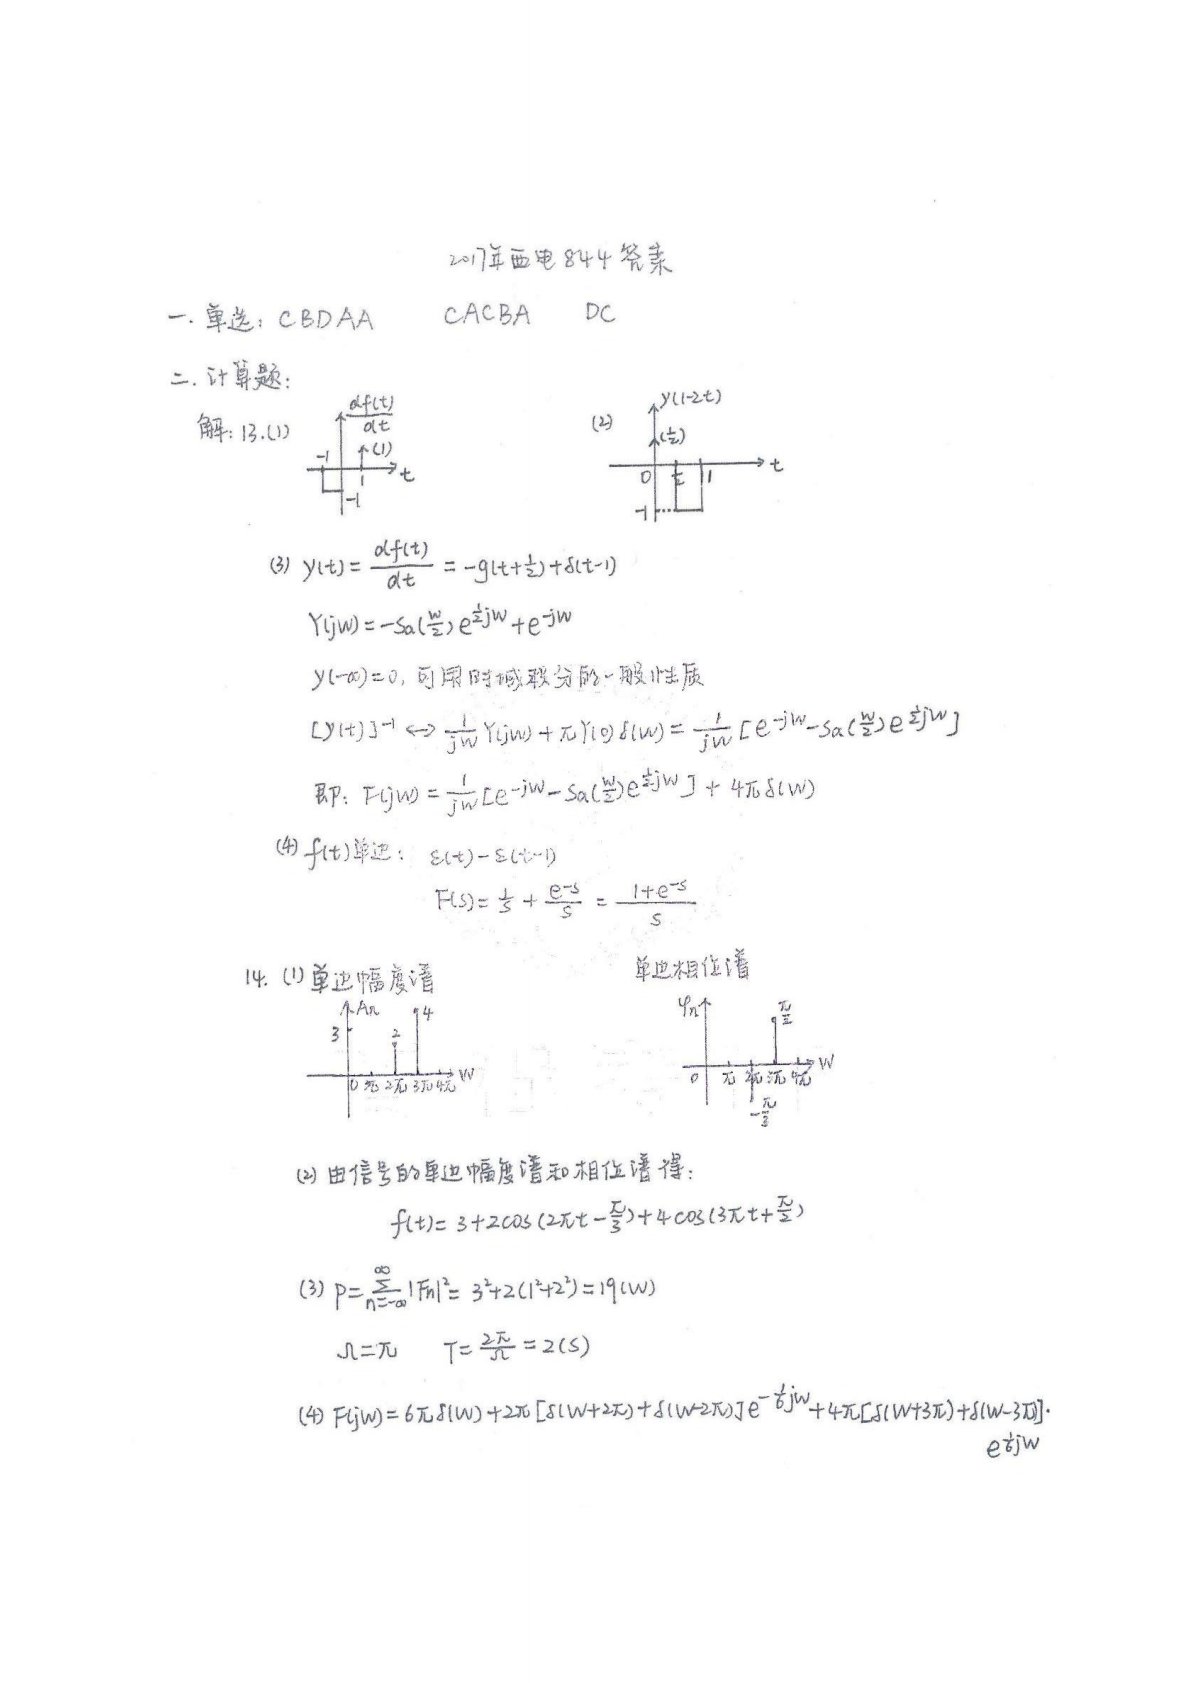 2017年西电844答案
一. 单选: CBDAA CACBA DC
二. 计算题:
解: 13.(1) df(t)/dt (1) -1 1 t -1
(2) y(1-2t) (1/2) 0 1/2 1 t -1
(3) y(t) = df(t)/dt = -g(t+1/2)+δ(t-1)
Y(jw) = -Sa(w/2)e^{1/2 jw}+e^{-jw}
y(-∞)=0, 可用时域积分的一般性质
[y(t)]^{-1} ↔ 1/jw Y(jw) + πY(0)δ(w) = 1/jw [e^{-jw}-Sa(w/2)e^{1/2 jw}]
即: F(jw) = 1/jw [e^{-jw}-Sa(w/2)e^{1/2 jw}] + 4πδ(w)
(4) f(t)单边: ε(t)-ε(t-1)
F(s) = 1/s + e^{-s}/s = 1+e^{-s}/s
14. (1) 单边幅度谱 单边相位谱
An 3 2 4 0 π 2π 3π 4π w
φn π/2 0 π 2π 3π 4π w -π/3
(2) 由信号的单边幅度谱和相位谱得:
f(t) = 3+2cos(2πt-π/3)+4cos(3πt+π/2)
(3) P = ∑_{n=-∞}^{∞} |Fn|² = 3²+2(1²+2²) = 19(W)
Ω=π T=2π/Ω=2(S)
(4) F(jw) = 6πδ(w)+2π[δ(w+2π)+δ(w-2π)]e^{-1/6 jw}+4π[δ(w+3π)+δ(w-3π)]·
e^{1/6 jw}